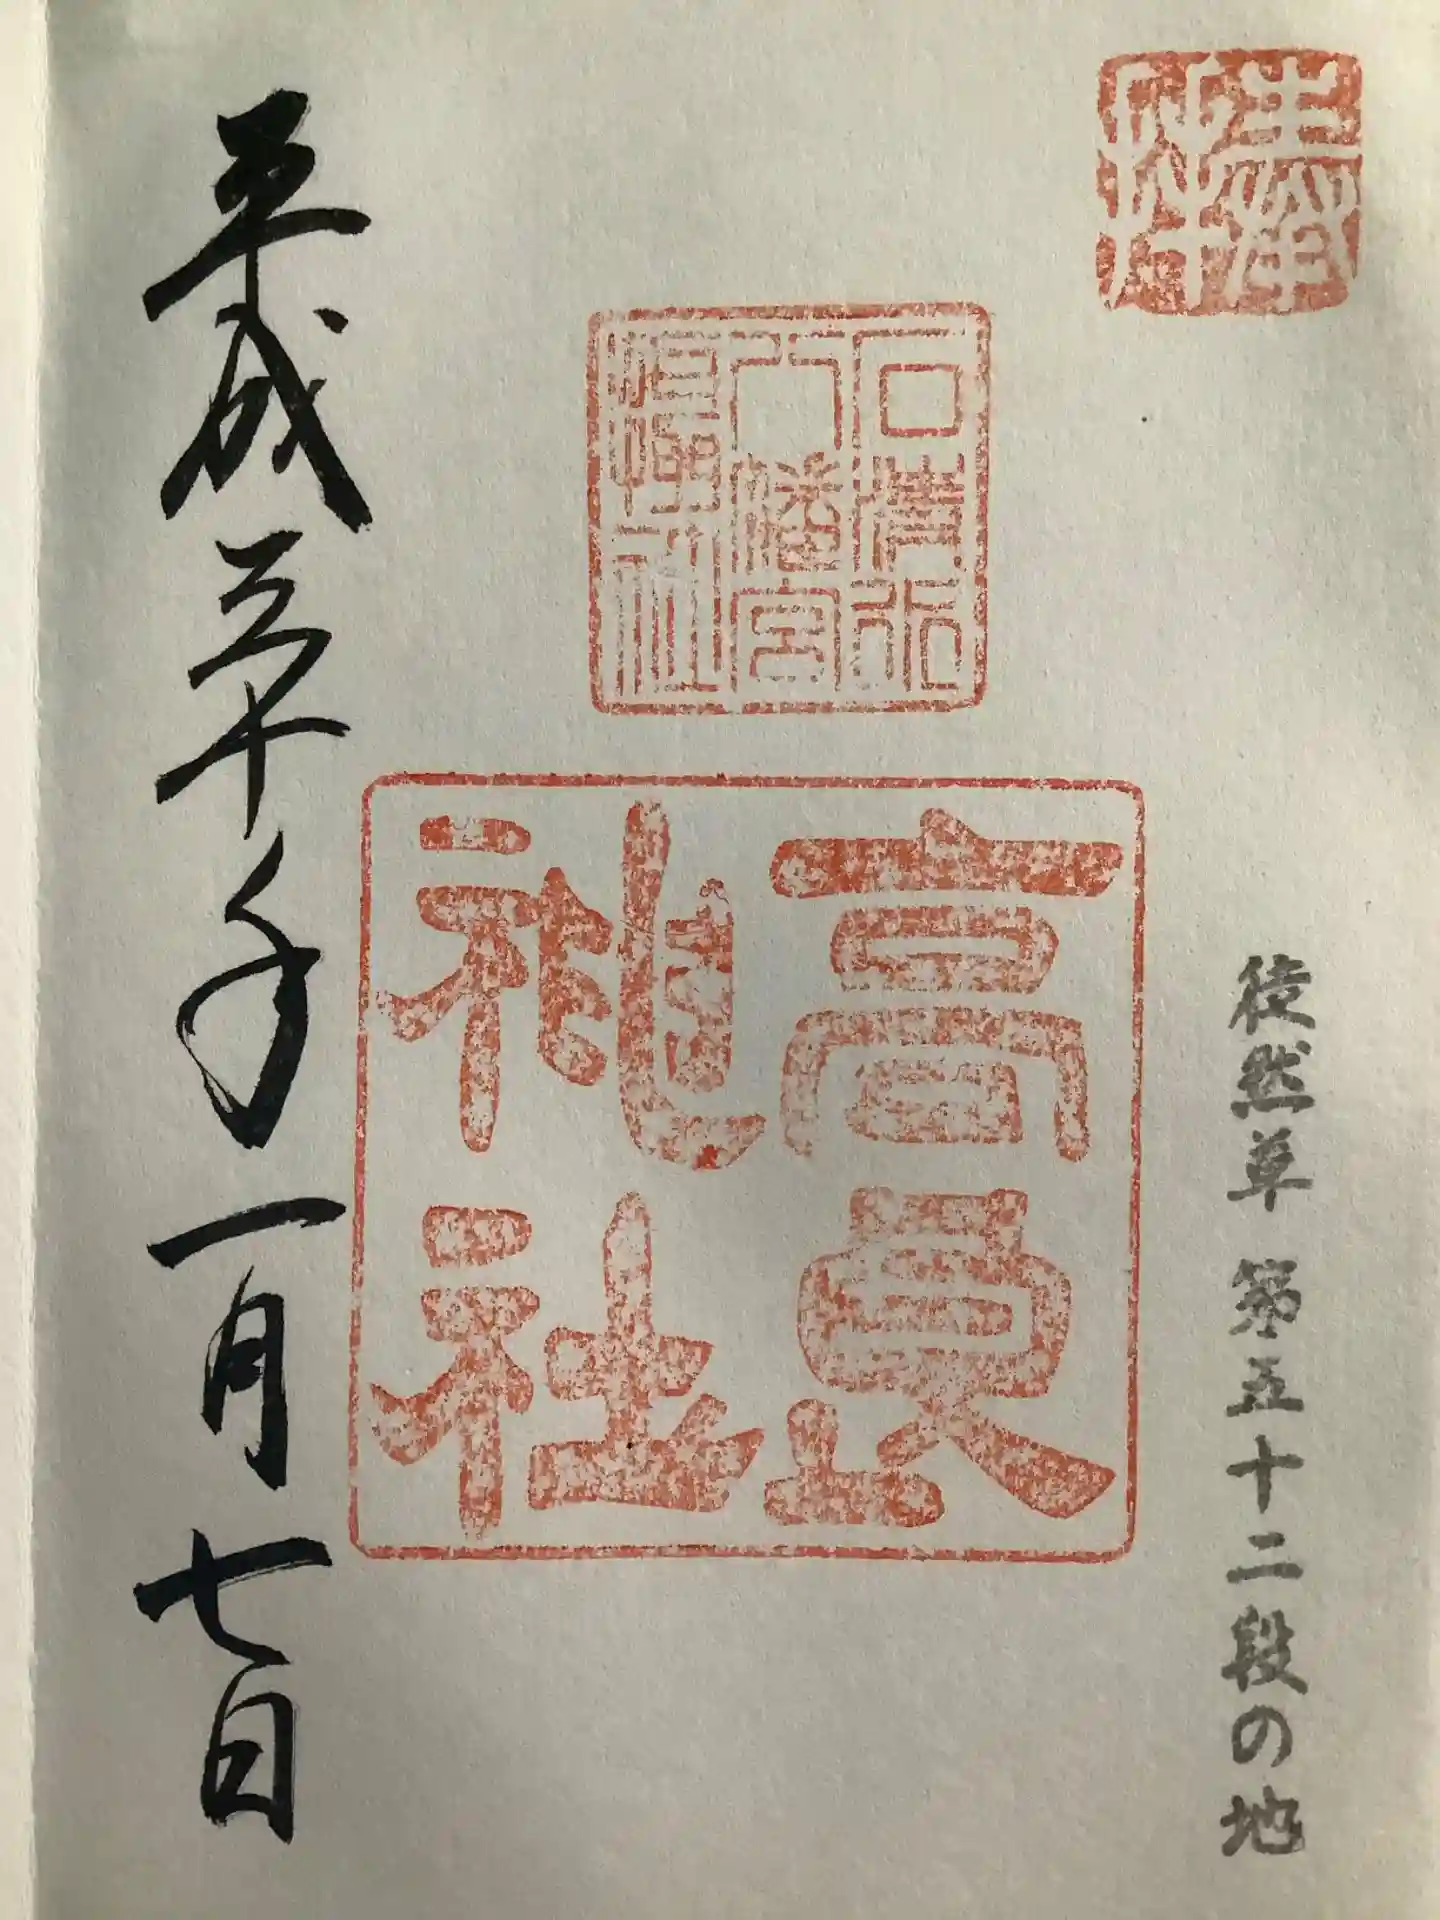 奉拝
徒然草 第五十二段の地
石清水
八幡宮
攝社
高良
神社
平成三十年一月七日